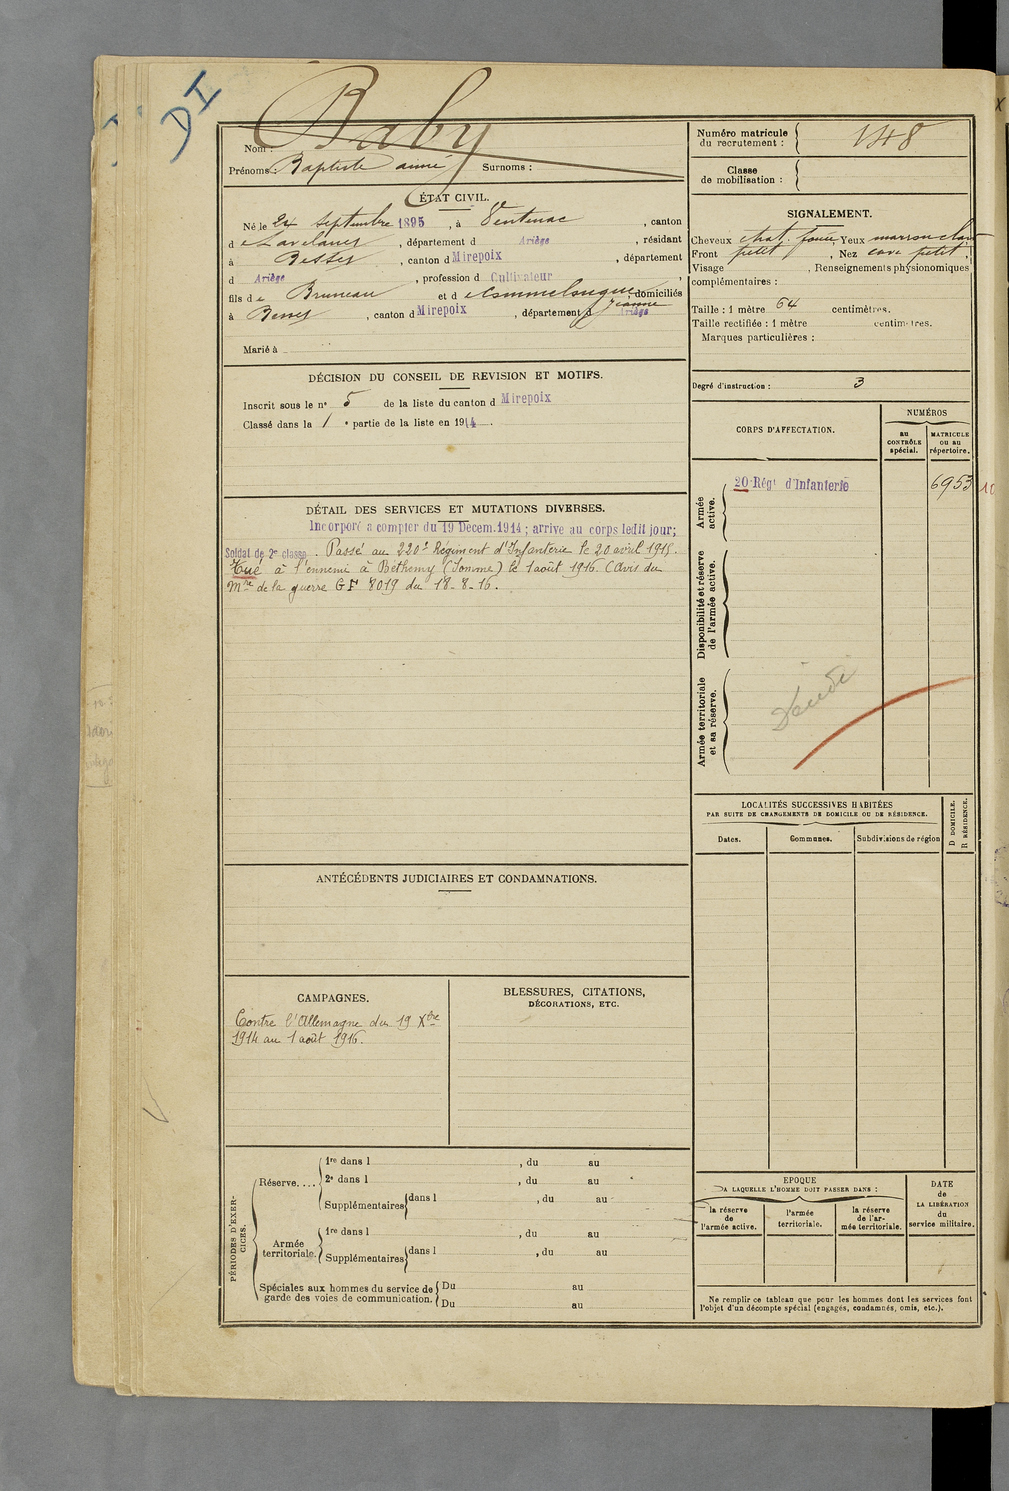 DI
Baby
Nom :
Prénoms : Baptiste aimé Surnoms :
ÉTAT CIVIL.
Né le 24 septembre 1895, à Ventenac, canton
de Lavelanet, département d Ariège, résidant
à Besset, canton d Mirepoix, département
d Ariège, profession d Cultivateur
fils de Bruneau et de Commelongue, domiciliés
Jeanne
à Besset, canton d Mirepoix, département d Ariège
Marié à
DÉCISION DU CONSEIL DE REVISION ET MOTIFS.
Inscrit sous le n° 5 de la liste du canton d Mirepoix
Classé dans la 1 e partie de la liste en 1914.
DÉTAIL DES SERVICES ET MUTATIONS DIVERSES.
Incorporé à compter du 19 Décem. 1914 ; arrivé au corps ledit jour;
Soldat de 2e classe. Passé au 220e Régiment d'Infanterie le 20 avril 1915.
Tué à l'ennemi à Béthemy (Somme) le 1 août 1916 (Avis du
Mre de la guerre GF 8019 du 18-8-16.
ANTÉCÉDENTS JUDICIAIRES ET CONDAMNATIONS.
CAMPAGNES.
Contre l'Allemagne du 19 Xbre
1914 au 1 août 1916.
BLESSURES, CITATIONS,
DÉCORATIONS, ETC.
PÉRIODES D'EXER-
CICES.
Réserve....
1re dans l , du au
2e dans l , du au
Supplémentaires dans l , du au
Armée
territoriale.
1re dans l , du au
Supplémentaires dans l , du au
Spéciales aux hommes du service de
garde des voies de communication.
Du au
Du au
Numéro matricule
du recrutement : 148
Classe
de mobilisation :
SIGNALEMENT.
Cheveux chat. foncé Yeux marron clair
Front petit, Nez cave petit,
Visage , Renseignements physionomiques
complémentaires :
Taille : 1 mètre 64 centimètres.
Taille rectifiée : 1 mètre centimètres.
Marques particulières :
Degré d'instruction : 3
CORPS D'AFFECTATION.
NUMÉROS
au
CONTRÔLE
spécial.
MATRICULE
ou au
répertoire.
Armée
active.
20 Régt d'Infanterie 6953
Disponibilité et réserve
de l'armée active.
Armée territoriale
et sa réserve.
Décédé
LOCALITÉS SUCCESSIVES HABITÉES
PAR SUITE DE CHANGEMENTS DE DOMICILE OU DE RÉSIDENCE.
D DOMICILE.
R RÉSIDENCE.
Dates. Communes. Subdivisions de région
EPOQUE
A LAQUELLE L'HOMME DOIT PASSER DANS :
la réserve
de
l'armée active.
l'armée
territoriale.
la réserve
de l'ar-
mée territoriale.
DATE
de
LA LIBÉRATION
du
service militaire.
Ne remplir ce tableau que pour les hommes dont les services font
l'objet d'un décompte spécial (engagés, condamnés, omis, etc.).